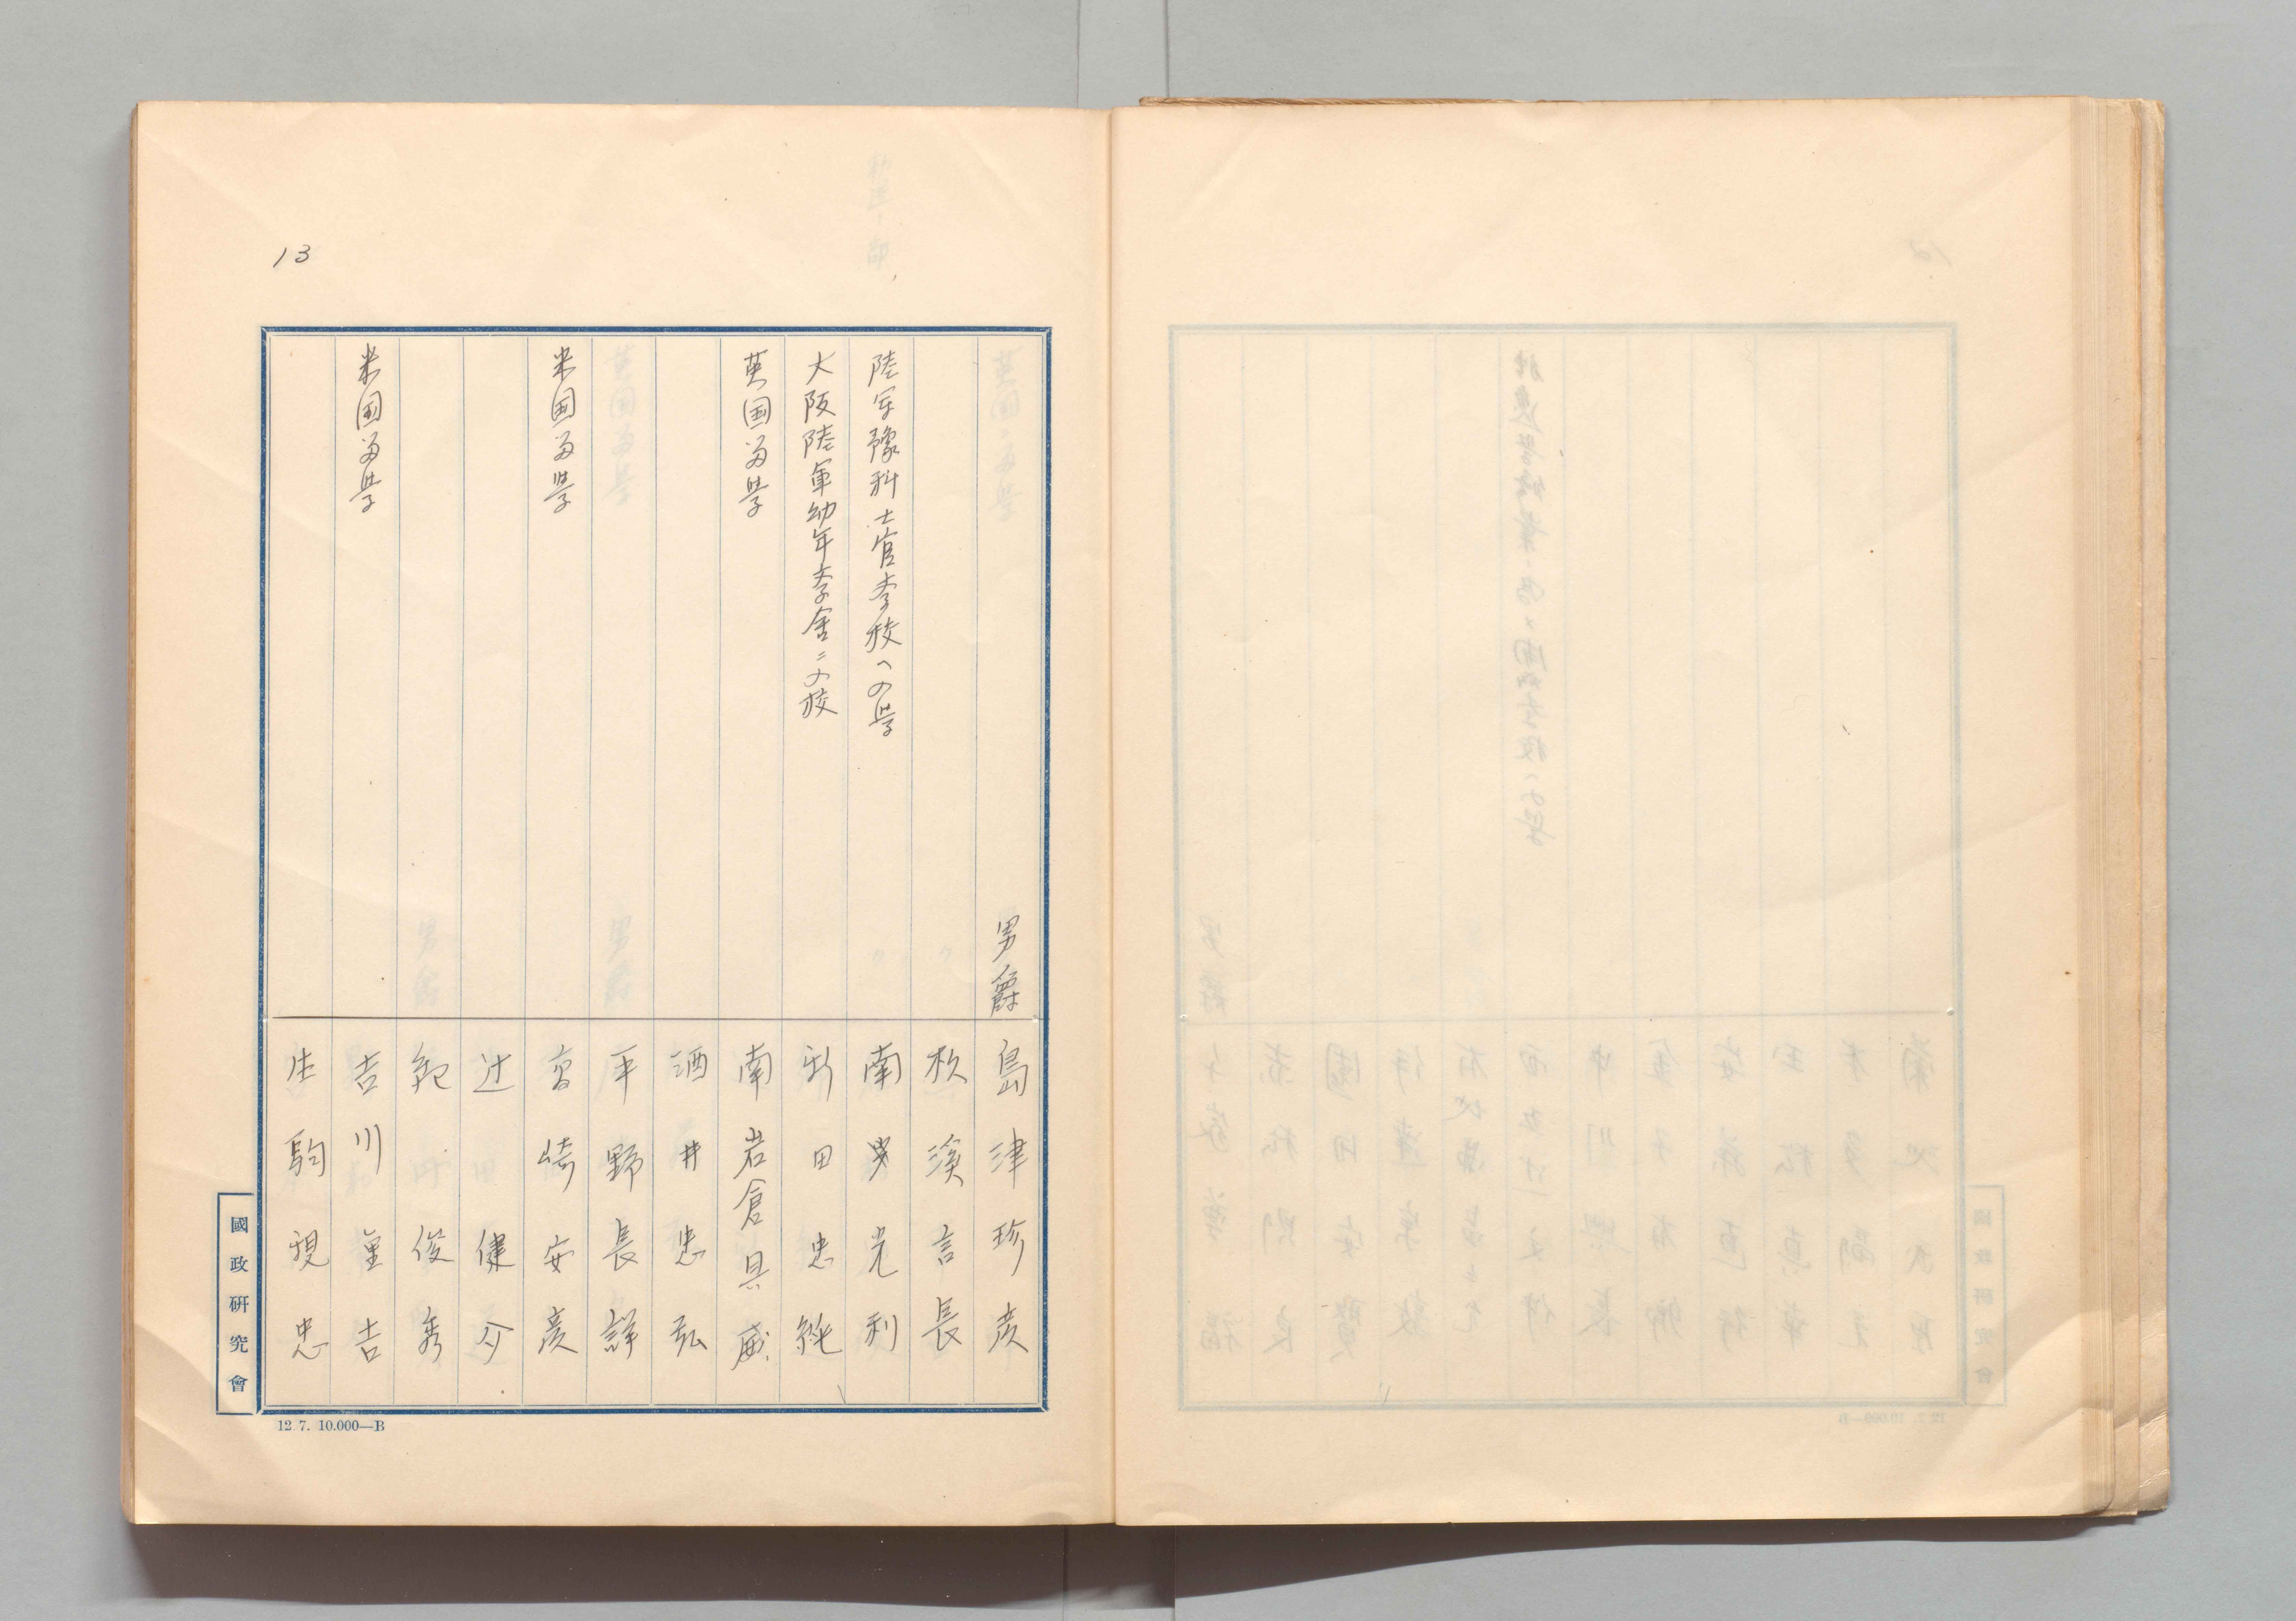 13
男爵 島津珍彦
松溪言長
陸军豫科士官斈校への學 南光利
大阪陸軍幼年斈舎ニ入校 新田忠純
英国留学 南岩倉具威
酒井忠弘
平野長詳
米国留学 高崎安彦
辻健介
乾俊秀
米国留学 吉川重吉
生駒親忠
國政研究會
12. 7. 10.000—B